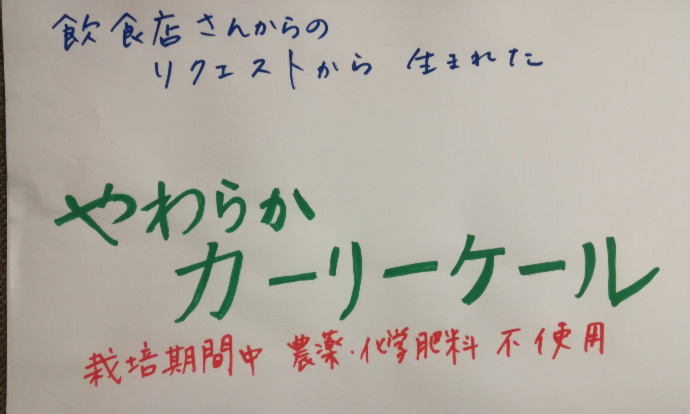 飲食店さんからの
リクエストから 生まれた
やわらか
カーリーケール
栽培期間中 農薬・化学肥料 不使用